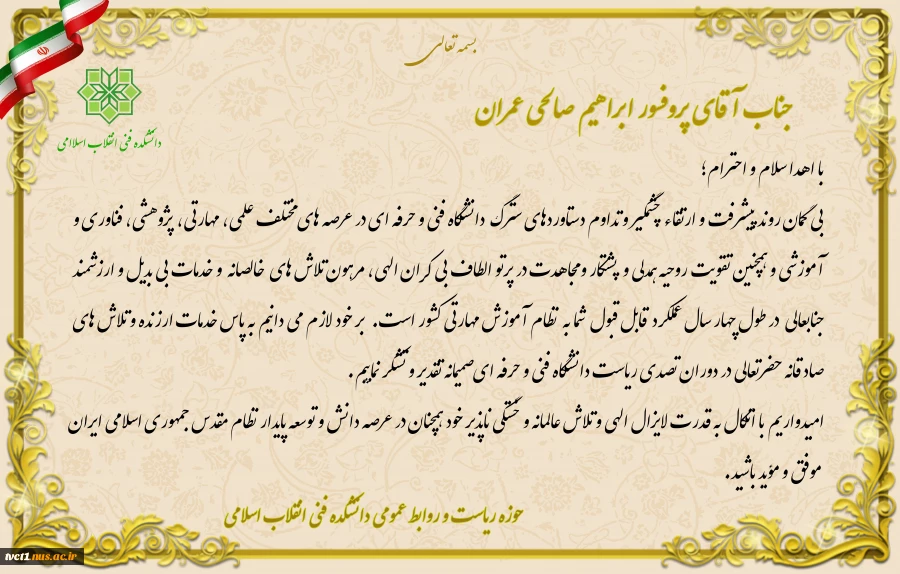 بسمه تعالی
جناب آقای پروفسور ابراهیم صالحی عمران
دانشکده فنی انقلاب اسلامی
با اهدا سلام و احترام؛
بی گمان روند پیشرفت و ارتقاء چشمگیر و تداوم دستاوردهای سترگ دانشگاه فنی و حرفه ای در عرصه های مختلف علمی، مهارتی، پژوهشی، فناوری و
آموزشی و همچنین تقویت روحیه همدلی و پشتکار ومجاهدت در پرتو الطاف بی کران الهی، مرهون تلاش های خالصانه و خدمات بی بدیل و ارزشمند
جنابعالی در طول چهار سال عملکرد قابل قبول شما به نظام آموزش مهارتی کشور است. بر خود لازم می دانیم به پاس خدمات ارزنده و تلاش های
صادقانه حضرتعالی در دوران تصدی ریاست دانشگاه فنی و حرفه ای صمیمانه تقدیر و تشکر نماییم.
امیدواریم با اتکال به قدرت لایزال الهی و تلاش عالمانه و خستگی ناپذیر خود همچنان در عرصه دانش و توسعه پایدار نظام مقدس جمهوری اسلامی ایران
موفق و موید باشید.
حوزه ریاست و روابط عمومی دانشکده فنی انقلاب اسلامی
tvct1.nus.ac.ir